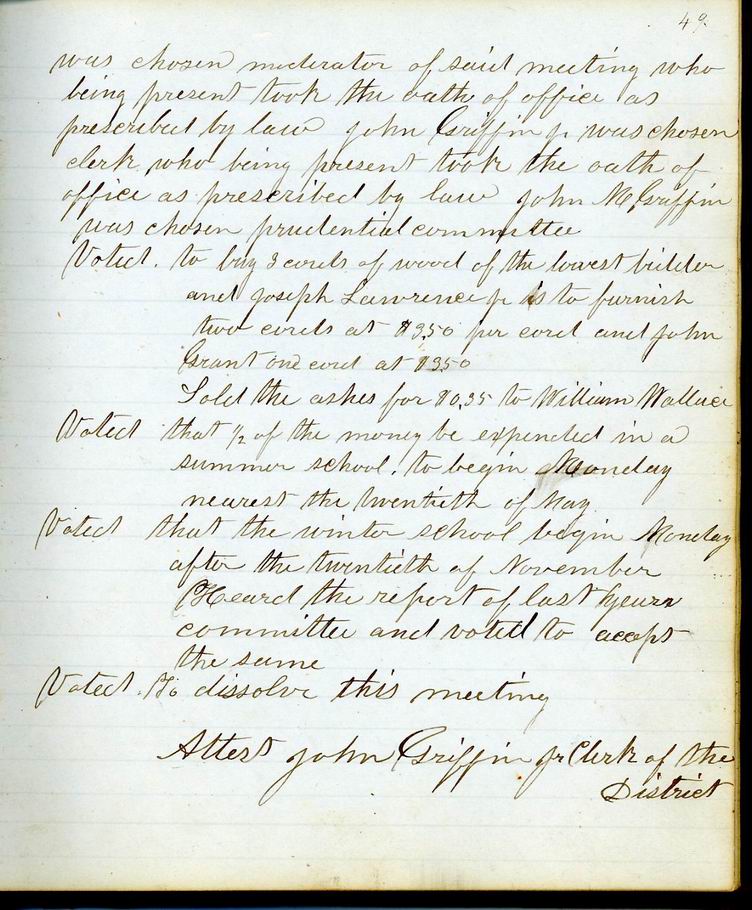 49.
was chosen moderator of said meeting who
being present took the oath of office as
prescribed by law John Griffin jr was chosen
clerk who being present took the oath of
office as prescribed by law John M. Griffin
was chosen prudential committee
Voted. to buy 3 cords of wood of the lowest bidder
and Joseph Lawrence jr is to furnish
two cords at $3,50 per cord and John
Grant one cord at $350
Sold the ashes for $0,35 to William Wallace
Voted that 1/2 of the money be expended in a
summer school. to begin Monday
nearest the twentieth of May
Voted that the winter school begin Monday
after the twentieth of November
Heard the report of last years
committee and voted to accept
the same
Voted. To dissolve this meeting
Attest John Griffin jr Clerk of the
District